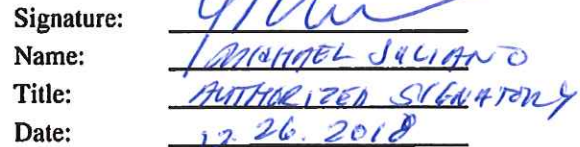 Signature:
Name: MICHAEL JULIANO
Title: AUTHORIZED SIGNATORY
Date: 12.26.2018